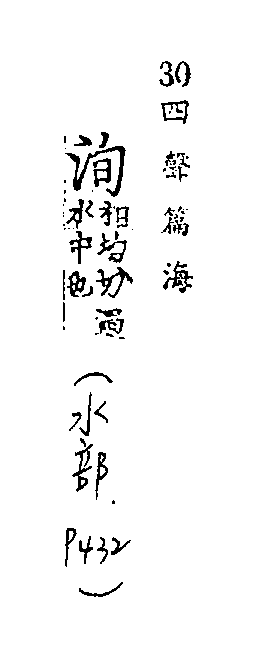 30 四聲篇海
洵
相均切
水中也
(水部. P432)